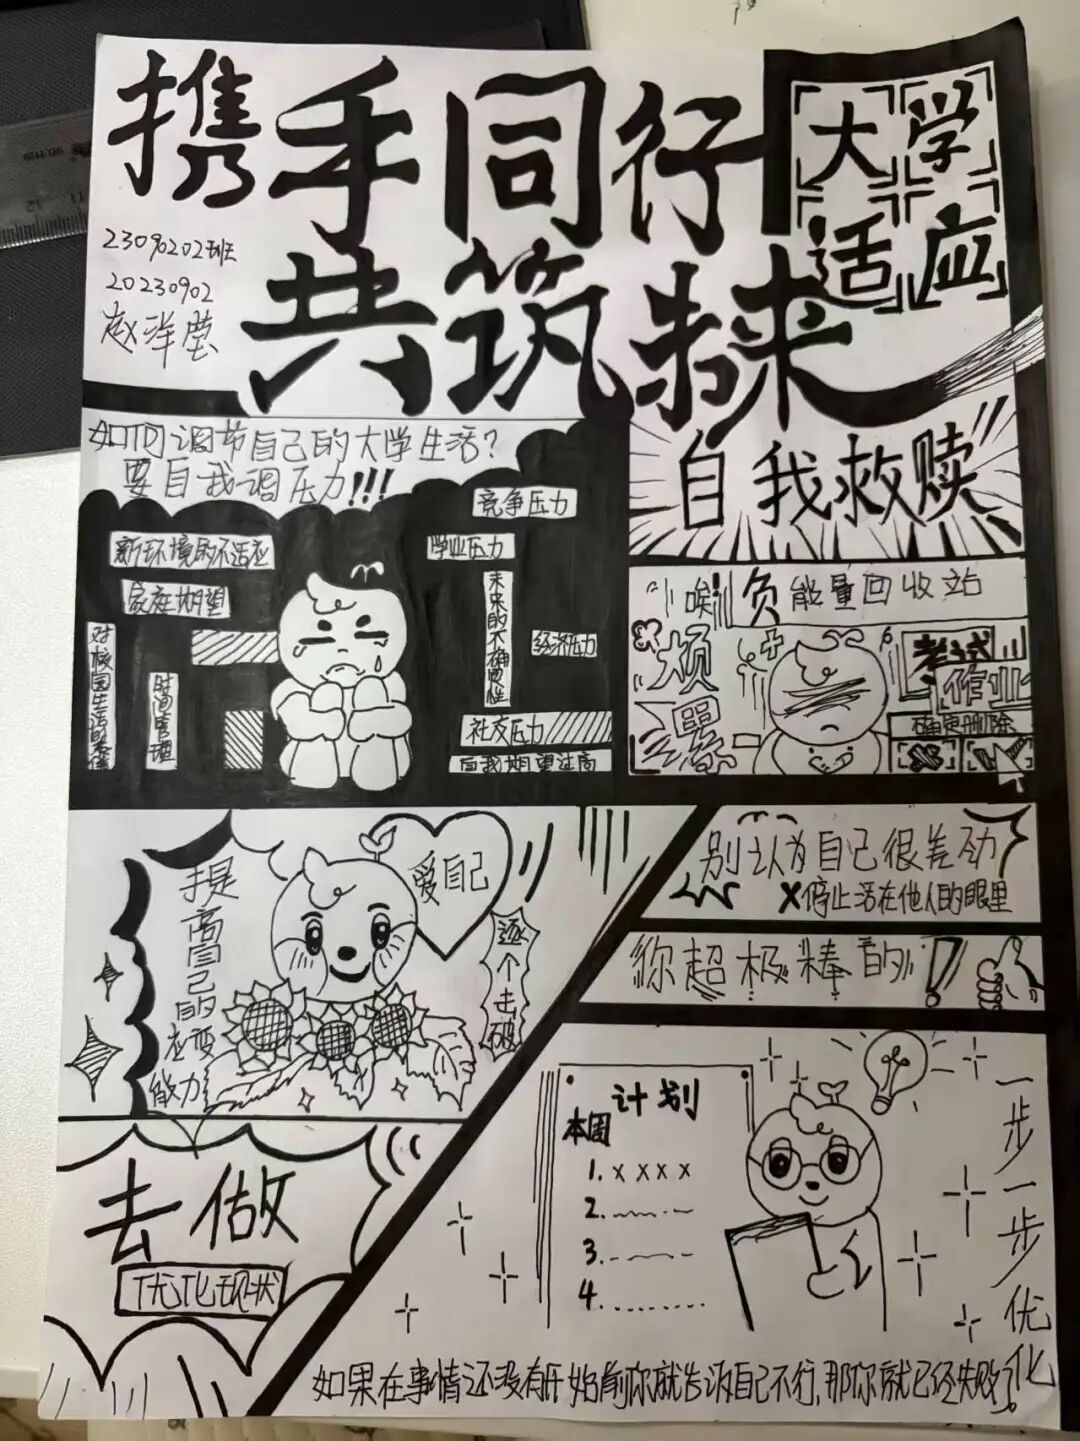 携手同行
共筑未来
大学
适应
23090202班
20230902
赵洋莹
如何调节自己的大学生活?
要自我调压力!!!
竞争压力
新环境的不适应
学业压力
家庭期望
未来的不确定性
经济压力
对校园生活的
时间管理
社交压力
自我期望过高
自我救赎
唉 负能量回收站
烦
累
考试
作业
确定删除
提高自己的应变能力
爱自己
逐个击破
别认为自己很差劲
X停止活在他人的眼里
你超极棒的!
去做
优化现状
计划
本周
1. x x x x
2.
3.
4.
一步一步优化
如果在事情还没有开始前你就告诉自己不行,那你就已经失败了。